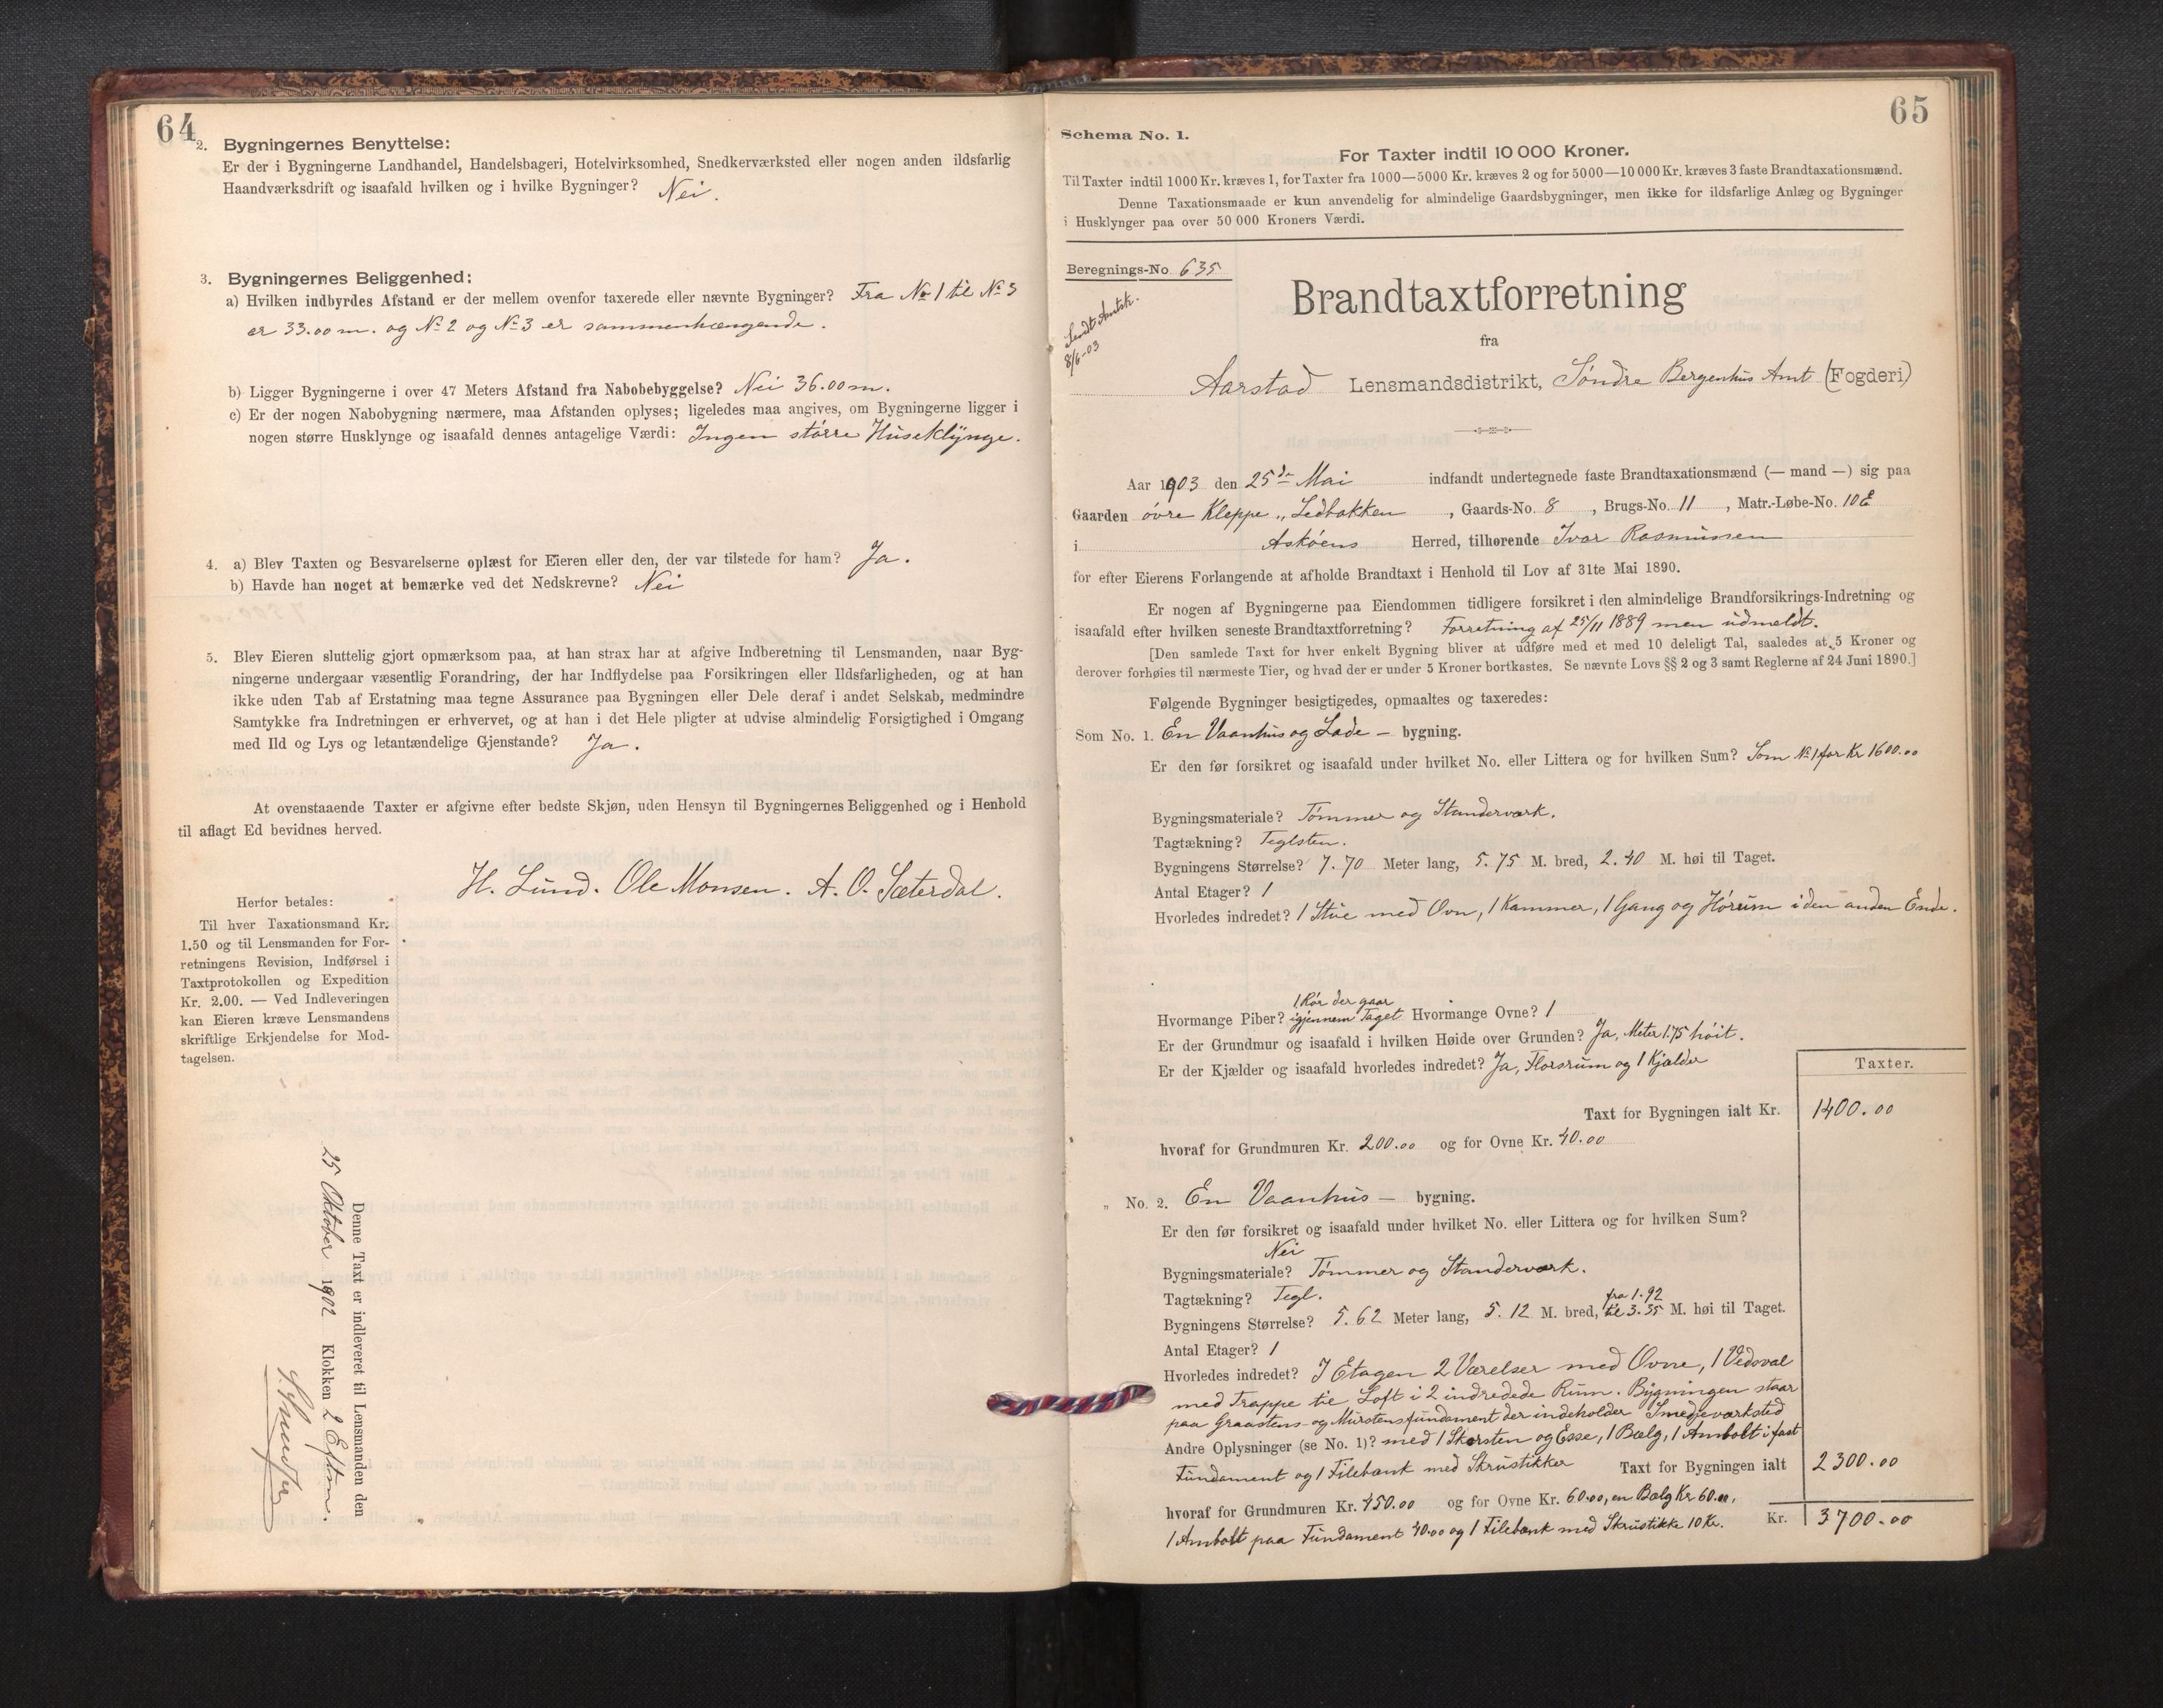 64
2. Bygningernes Benyttelse:
Er der i Bygningerne Landhandel, Handelsbageri, Hotelvirksomhed, Snedkerværksted eller nogen anden ildsfarlig
Haandværksdrift og isaafald hvilken og i hvilke Bygninger? Nei.
3. Bygningernes Beliggenhed:
a) Hvilken indbyrdes Afstand er der mellem ovenfor taxerede eller nævnte Bygninger? Fra No 1 til No 3
er 33.00 m. og No 2 og No 3 er sammenhængende.
b) Ligger Bygningerne i over 47 Meters Afstand fra Nabobebyggelse? Nei 36.00 m.
c) Er der nogen Nabobygning nærmere, maa Afstanden oplyses; ligeledes maa angives, om Bygningerne ligger i
nogen større Husklynge og isaafald dennes antagelige Værdi: Ingen større Huseklynge.
4. a) Blev Taxten og Besvarelserne oplæst for Eieren eller den, der var tilstede for ham? Ja.
b) Havde han noget at bemærke ved det Nedskrevne? Nei
5. Blev Eieren sluttelig gjort opmærksom paa, at han strax har at afgive Indberetning til Lensmanden, naar Byg-
ningerne undergaar væsentlig Forandring, der har Indflydelse paa Forsikringen eller Ildsfarligheden, og at han
ikke uden Tab af Erstatning maa tegne Assurance paa Bygningen eller Dele deraf i andet Selskab, medmindre
Samtykke fra Indretningen er erhvervet, og at han i det Hele pligter at udvise almindelig Forsigtighed i Omgang
med Ild og Lys og letantændelige Gjenstande? Ja.
At ovenstaaende Taxter er afgivne efter bedste Skjøn, uden Hensyn til Bygningernes Beliggenhed og i Henhold
til aflagt Ed bevidnes herved.
H. Lund. Ole Monsen. A. O. Sæterdal.
Herfor betales:
Til hver Taxationsmand Kr.
1.50 og til Lensmanden for For-
retningens Revision, Indførsel i
Taxtprotokollen og Expedition
Kr. 2.00. — Ved Indleveringen
kan Eieren kræve Lensmandens
skriftlige Erkjendelse for Mod-
tagelsen.
Denne Taxt er indleveret til Lensmanden den
25 Oktober 1902 Klokken 2 Eftm.
65
Schema No. 1.
For Taxter indtil 10 000 Kroner.
Til Taxter indtil 1000 Kr. kræves 1, for Taxter fra 1000—5000 Kr. kræves 2 og for 5000—10 000 Kr. kræves 3 faste Brandtaxationsmænd.
Denne Taxationsmaade er kun anvendelig for almindelige Gaardsbygninger, men ikke for ildsfarlige Anlæg og Bygninger
i Husklynger paa over 50 000 Kroners Værdi.
Beregnings-No 635
Sendt Amtsk.
8/6-03
Brandtaxtforretning
fra
Aarstad Lensmandsdistrikt, Søndre Bergenhus Amt (Fogderi)
Aar 1903 den 25de Mai indfandt undertegnede faste Brandtaxationsmænd (— mand —) sig paa
Gaarden øvre Kleppe „ Ledbakken , Gaards-No. 8 , Brugs-No. 11 , Matr.-Løbe-No. 10E
i Askøens Herred, tilhørende Ivar Rasmussen
for efter Eierens Forlangende at afholde Brandtaxt i Henhold til Lov af 31te Mai 1890.
Er nogen af Bygningerne paa Eiendommen tidligere forsikret i den almindelige Brandforsikrings-Indretning og
isaafald efter hvilken seneste Brandtaxtforretning? Forretning af 25/11 1889 men udmeldt.
[Den samlede Taxt for hver enkelt Bygning bliver at udføre med et med 10 deleligt Tal, saaledes at 5 Kroner og
derover forhøies til nærmeste Tier, og hvad der er under 5 Kroner bortkastes. Se nævnte Lovs §§ 2 og 3 samt Reglerne af 24 Juni 1890.]
Følgende Bygninger besigtigedes, opmaaltes og taxeredes:
Som No. 1. En Vaanhus og Lade — bygning.
Er den før forsikret og isaafald under hvilket No. eller Littera og for hvilken Sum? Som No 1 for Kr 1600.00
Bygningsmateriale? Tømmer og Standerværk.
Tagtækning? Teglsten.
Bygningens Størrelse? 7.70 Meter lang, 5.75 M. bred, 2.40 M. høi til Taget.
Antal Etager? 1
Hvorledes indredet? 1 Stue med Ovn, 1 Kammer, 1 Gang og Hørum i den anden Ende.
Hvormange Piber? 1 Rør der gaar igjennem Taget Hvormange Ovne? 1
Er der Grundmur og isaafald i hvilken Høide over Grunden? Ja, Meter 1.75 høit.
Er der Kjælder og isaafald hvorledes indredet? Ja, Florsrum og 1 Kjælder
Taxter.
Taxt for Bygningen ialt Kr. 1400.00
hvoraf for Grundmuren Kr. 200.00 og for Ovne Kr. 40.00
„ No. 2. En Vaanhus — bygning.
Er den før forsikret og isaafald under hvilket No. eller Littera og for hvilken Sum?
Nei
Bygningsmateriale? Tømmer og Standerværk.
Tagtækning? Tegl.
Bygningens Størrelse? 5.62 Meter lang, 5.12 M. bred, fra 1.92 til 3.35 M. høi til Taget.
Antal Etager? 1
Hvorledes indredet? I Etagen 2 Værelser med Ovne, 1 Vedsval
med Trappe til Loft i 2 indredede Rum. Bygningen staar
paa Graastens- og Murstensfundament der indeholder Smedjeværksted
Andre Oplysninger (se No. 1)? med 1 Skorsten og Esse, 1 Bælg, 1 Ambolt i fast
Fundament og 1 Filebænk med Skrustikker Taxt for Bygningen ialt 2300.00
hvoraf for Grundmuren Kr. 450.00 og for Ovne Kr. 60.00, en Bælg Kr 60.00,
1 Ambolt paa Fundament 40.00 og 1 Filebænk med Skrustikke 10 Kr. Kr. 3700.00